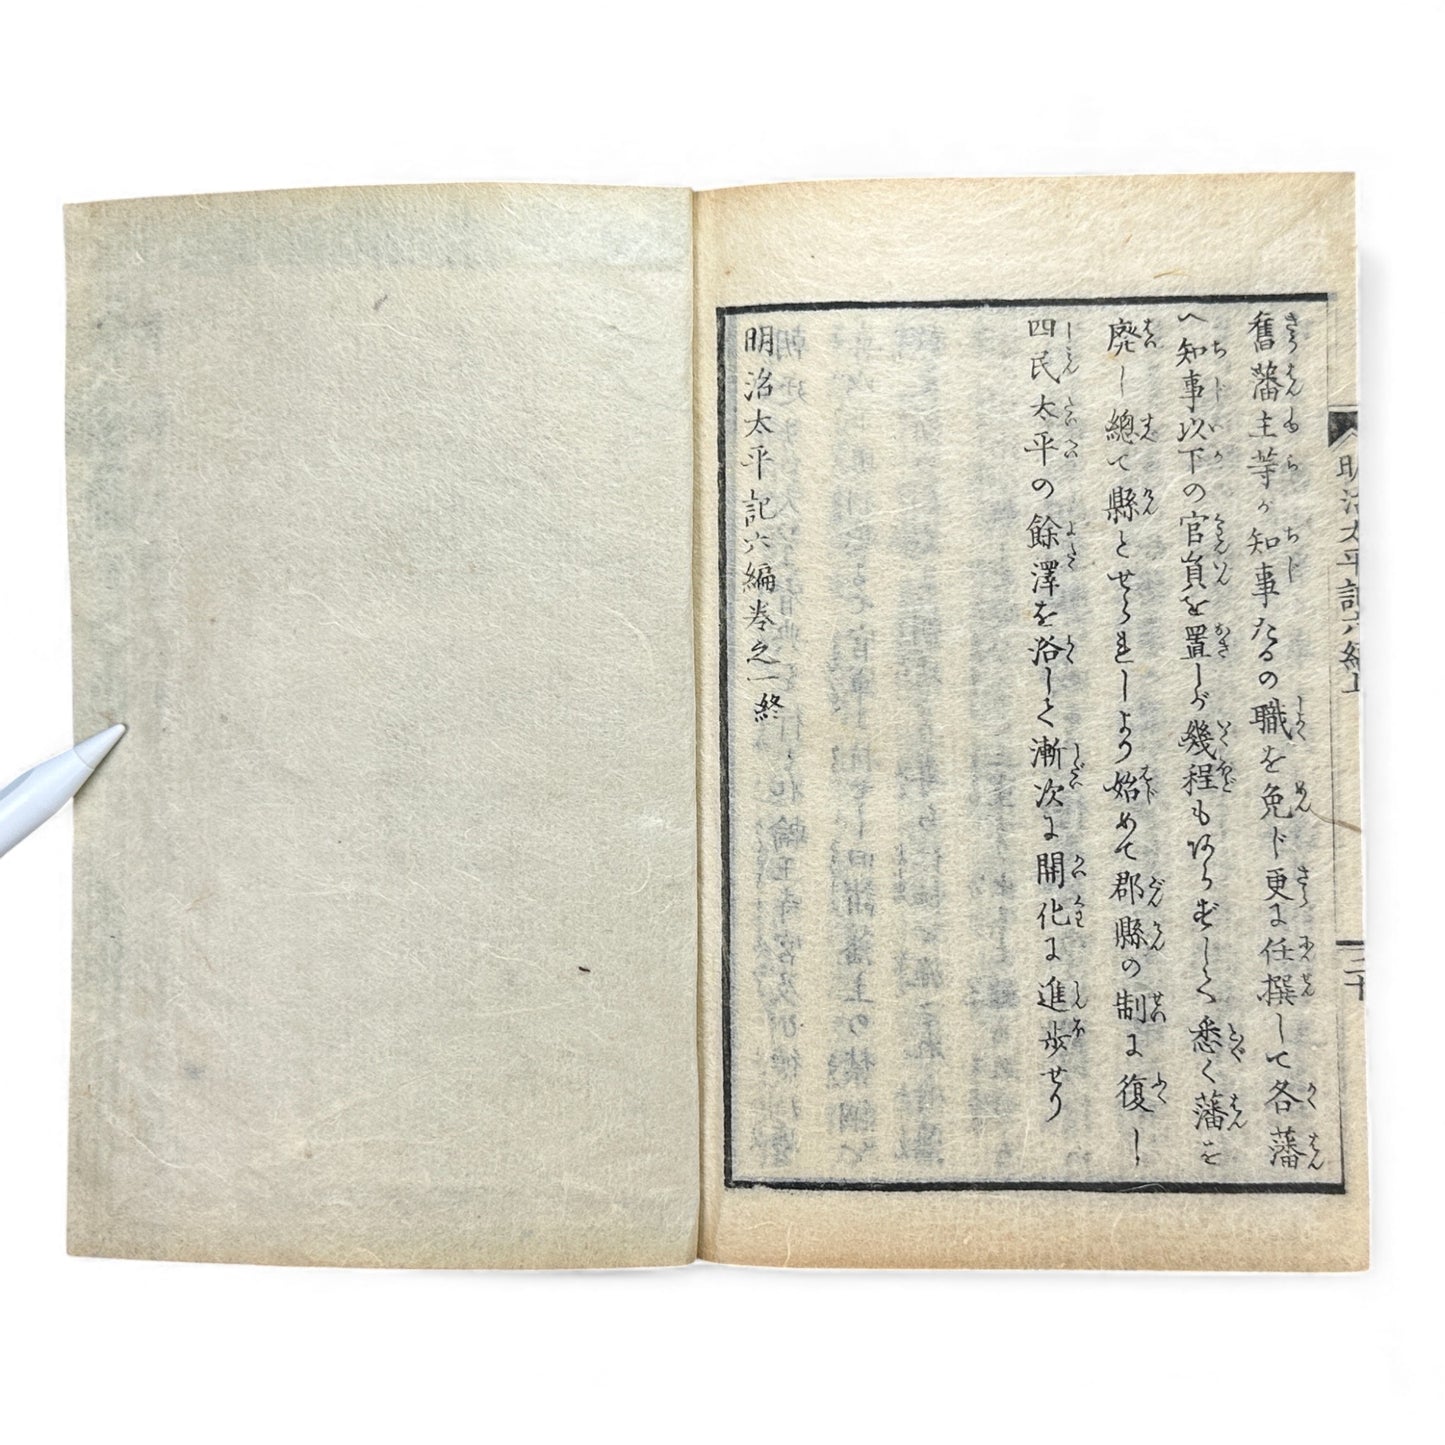 舊藩主等が知事たるの職を免じ更に任撰して各藩
へ知事以下の官員を置しが幾程もあらずして悉く藩を
廃し總て縣とせられしより始めて郡縣の制に復し
四民太平の餘澤を浴して漸次に開化に進歩せり
明治太平記六編巻之一終
明治太平記六編上